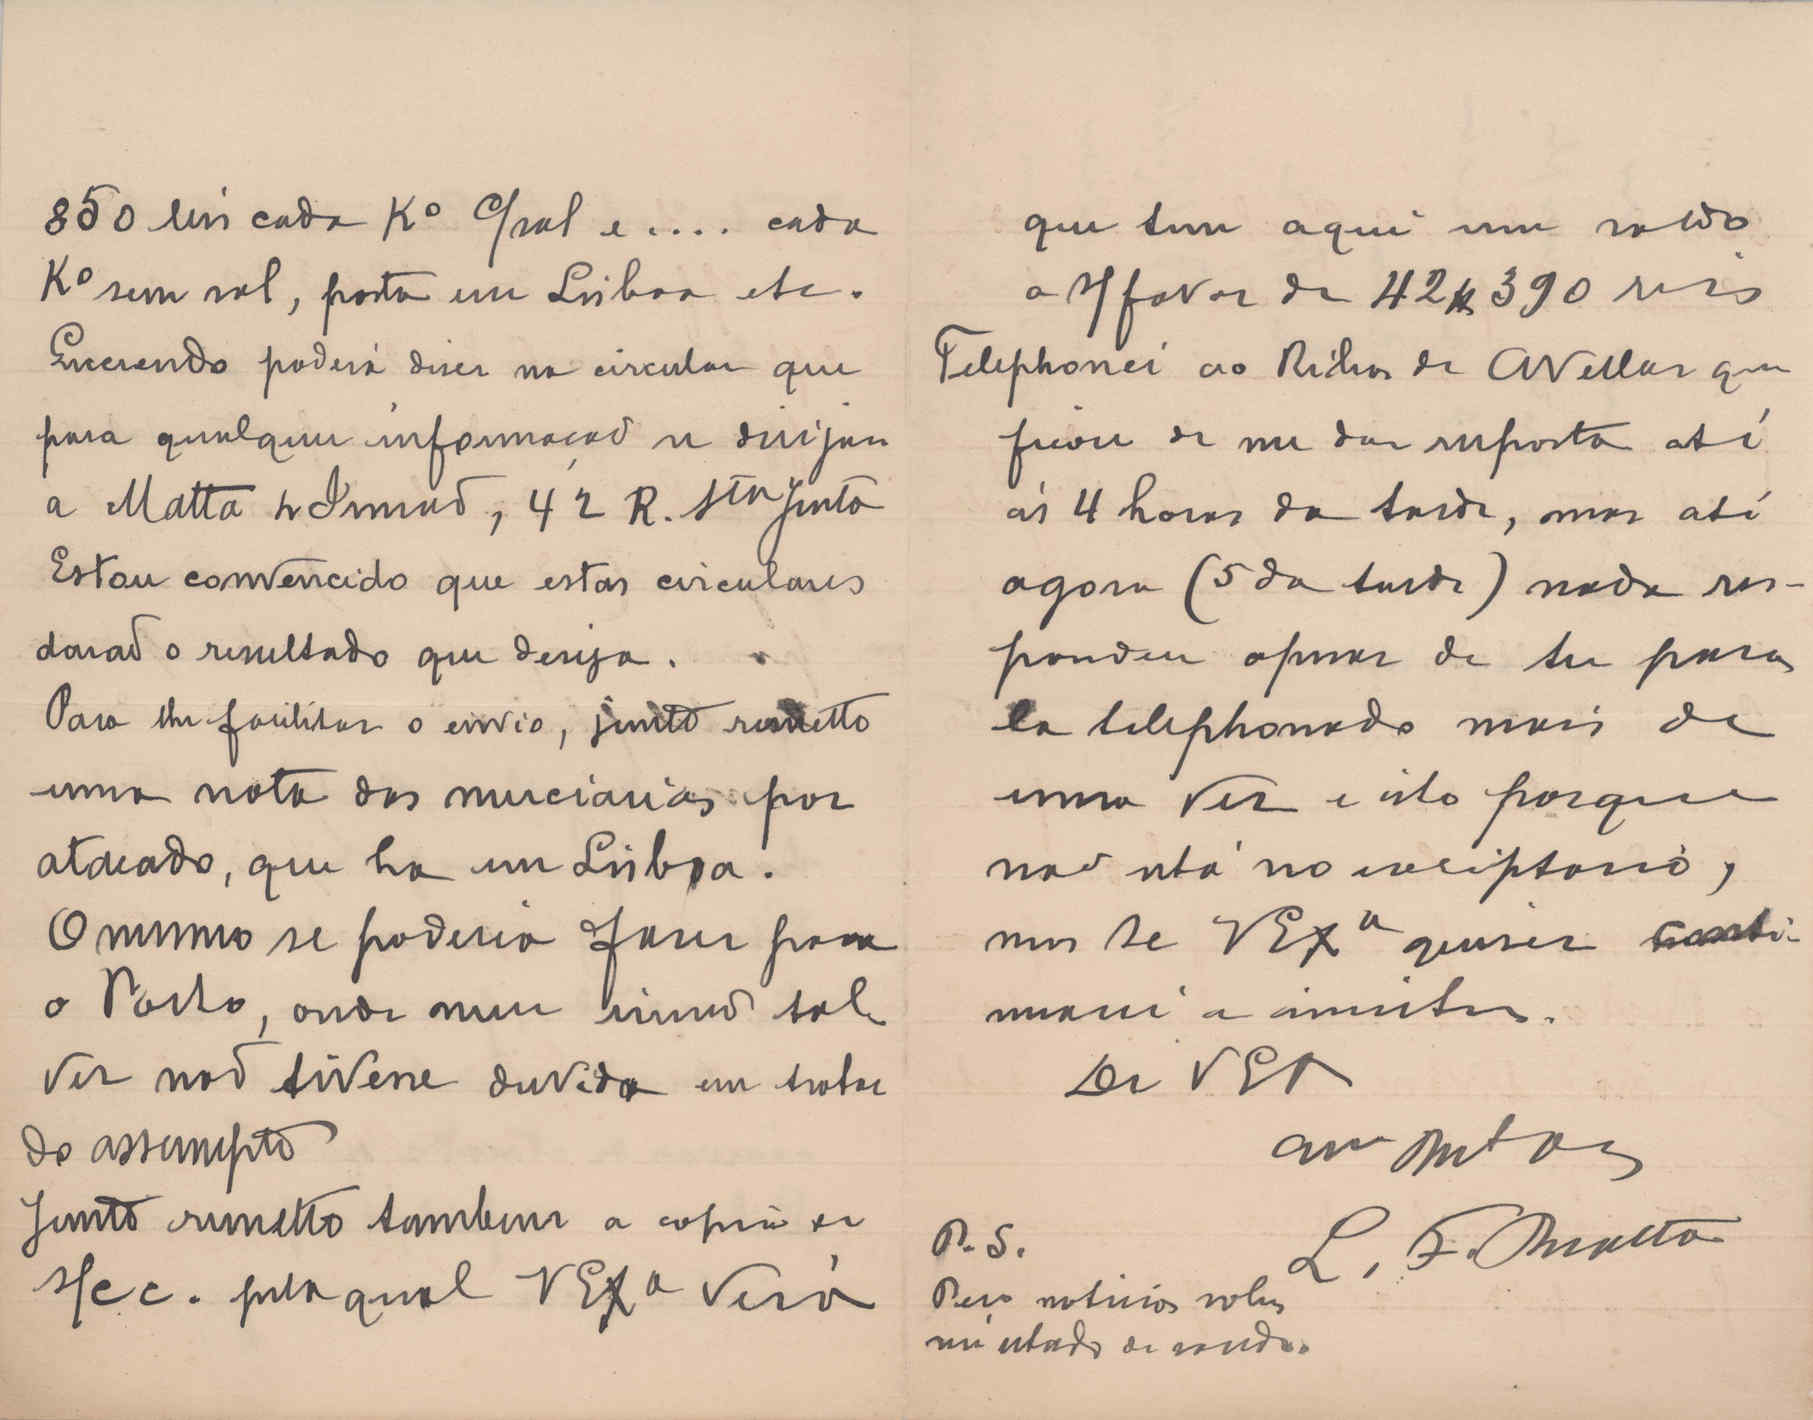 850 reis cada Kº c/sal e .... cada
Kº sem sal, posta em Lisboa etc.
Querendo poderá diser na circular que
para qualquer informação se dirijam
a Matta & Irmão, 42 R. Sta Justa
Estou convencido que estas circulares
darão o resultado que deseja.
Para lhe facilitar o envio, junto remetto
uma nota das merciarias por
atacado, que ha em Lisboa.
O mesmo se poderia fazer para
o Porto, onde meu irmão tal-
vez não tivesse duvida em tratar
do assumpto
Junto remetto tambem a copia de
s/c c. pela qual VExª verá
que tem aqui um saldo
a s/favor de 42$390 reis
Telephonei ao Ribas de Avellar que
ficou de me dar resposta até
ás 4 horas da tarde, mas até
agora (5 da tarde) nada res-
pondeu apesar de ter para
la telephonado mais de
uma vez e isto porque
não está no escriptorio,
mas se VExª quiser conti-
nuarei a insistir.
De VEx
L. F. Matta
P. S.
Peço noticias sobre
seu estado de saude.